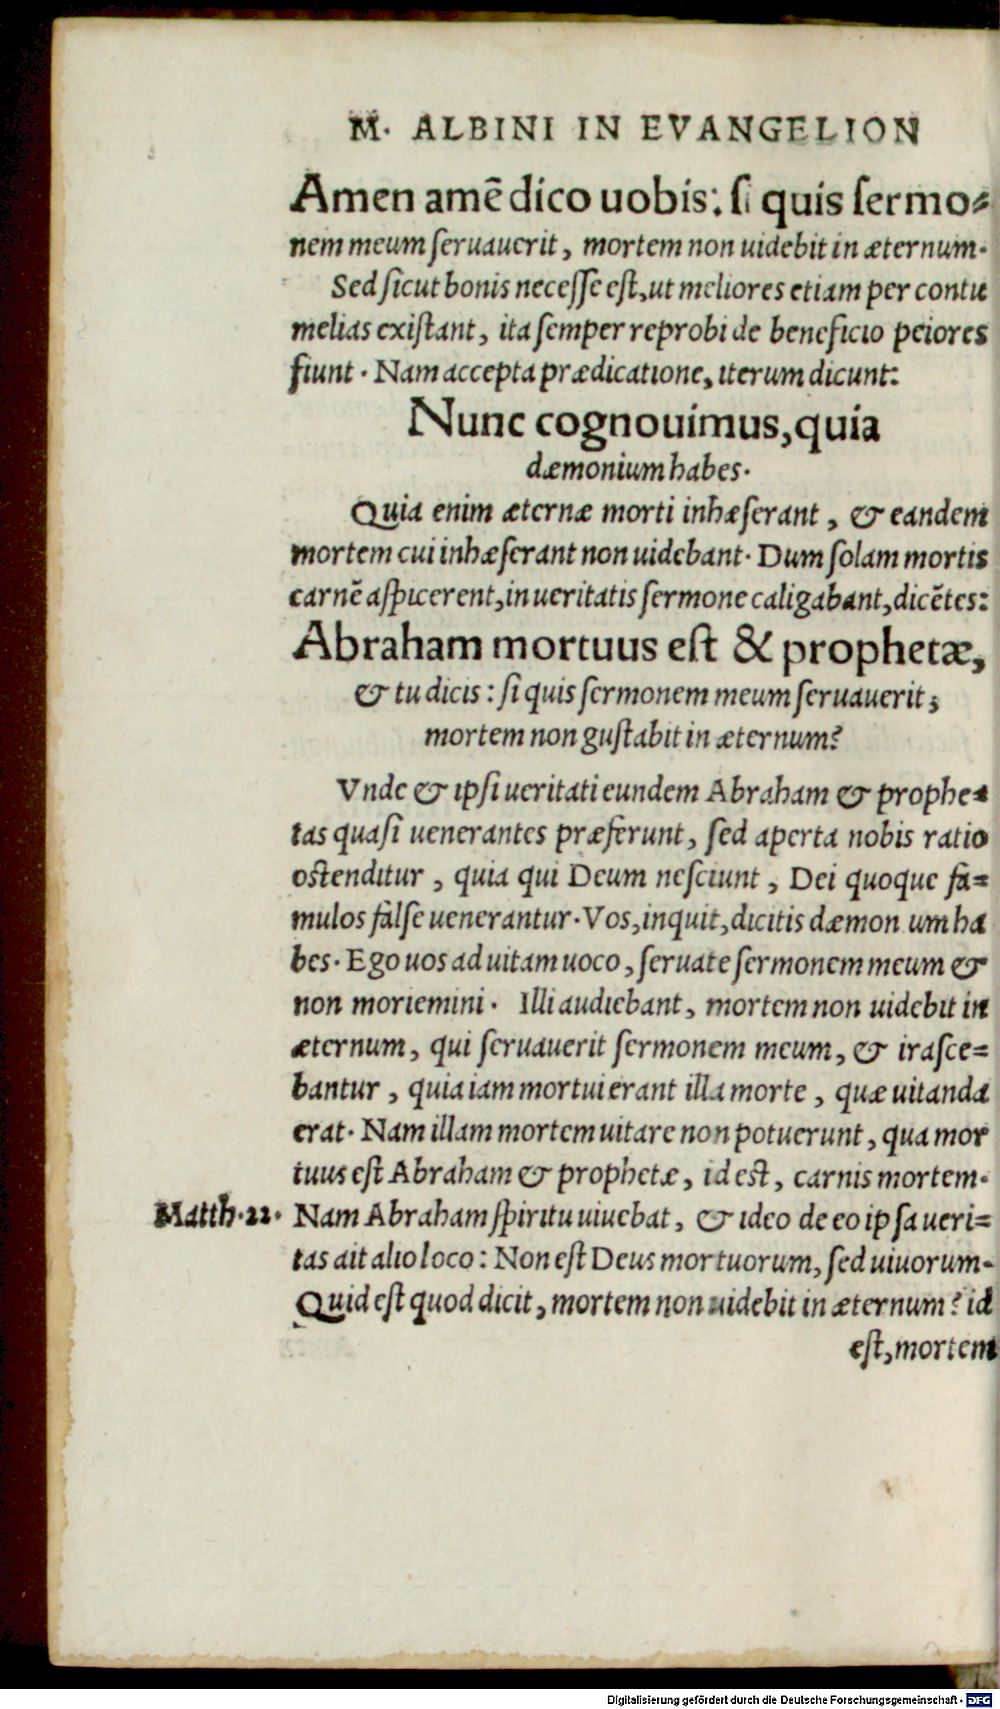 M. ALBINI IN EVANGELION
Amen amē dico uobis: ſi quis ſermo⸗
nem meum ſeruauerit, mortem non uidebit in æternum.
Sed ſicut bonis neceſſe eſt, ut meliores etiam per contu
melias exiſtant, ita ſemper reprobi de beneficio peiores
fiunt. Nam accepta prædicatione, iterum dicunt:
Nunc cognouimus, quia
dæmonium habes.
Quia enim æternæ morti inhæſerant, & eandem
mortem cui inhæſerant non uidebant. Dum ſolam mortis
carnē aſpicerent, in ueritatis ſermone caligabant, dicētes:
Abraham mortuus eſt & prophetæ,
& tu dicis: ſi quis ſermonem meum ſeruauerit;
mortem non guſtabit in æternum?
Vnde & ipſi ueritati eundem Abraham & prophe⸗
tas quaſi uenerantes præferunt, ſed aperta nobis ratio
oſtenditur, quia qui Deum neſciunt, Dei quoque fa⸗
mulos falſe uenerantur. Vos, inquit, dicitis dæmon um ha
bes. Ego uos ad uitam uoco, ſeruate ſermonem meum &
non moriemini. Illi audiebant, mortem non uidebit in
æternum, qui ſeruauerit ſermonem meum, & iraſce⸗
bantur, quia iam mortui erant illa morte, quæ uitanda
erat. Nam illam mortem uitare non potuerunt, qua mor
tuus eſt Abraham & prophetæ, id eſt, carnis mortem.
Matth. 22. Nam Abraham ſpiritu uiuebat, & ideo de eo ipſa ueri⸗
tas ait alio loco: Non eſt Deus mortuorum, ſed uiuorum.
Quid eſt quod dicit, mortem non uidebit in æternum? id
eſt, mortem
Digitalisierung gefördert durch die Deutsche Forschungsgemeinschaft - DFG